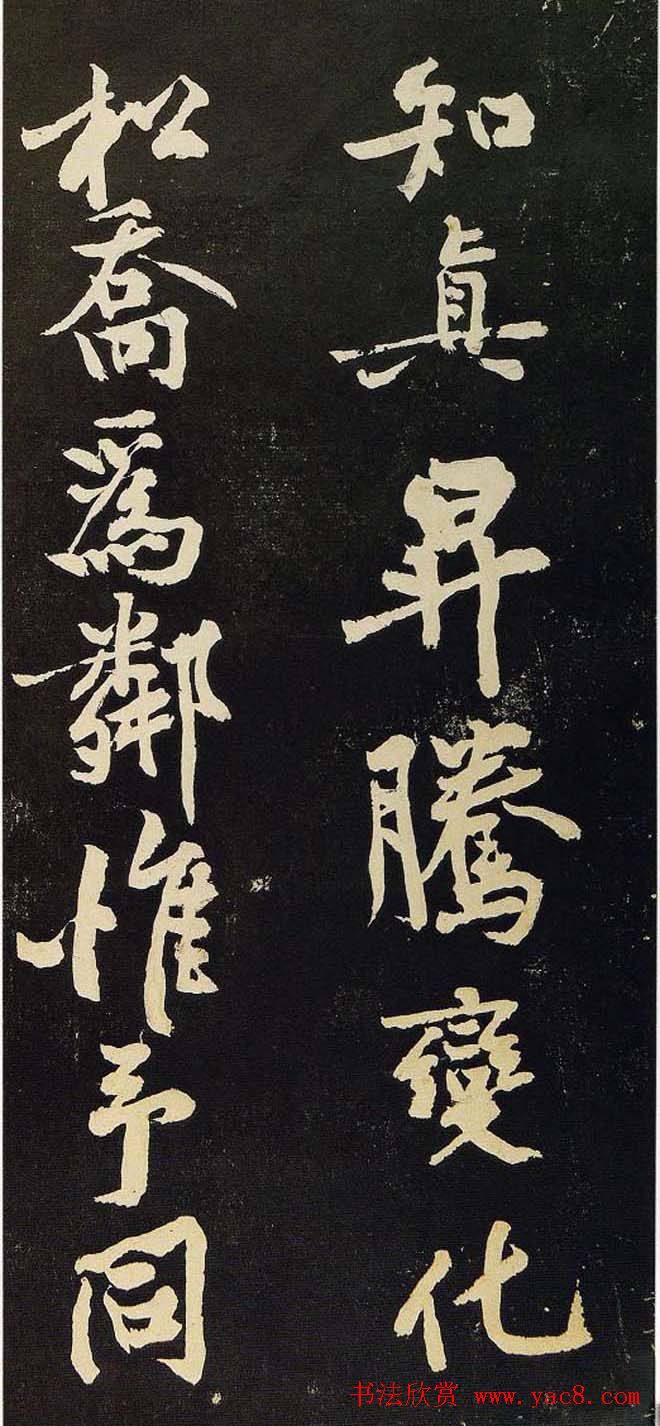 知真昇騰變化
松喬為鄰惟予同
书法欣赏 www.yac8.com